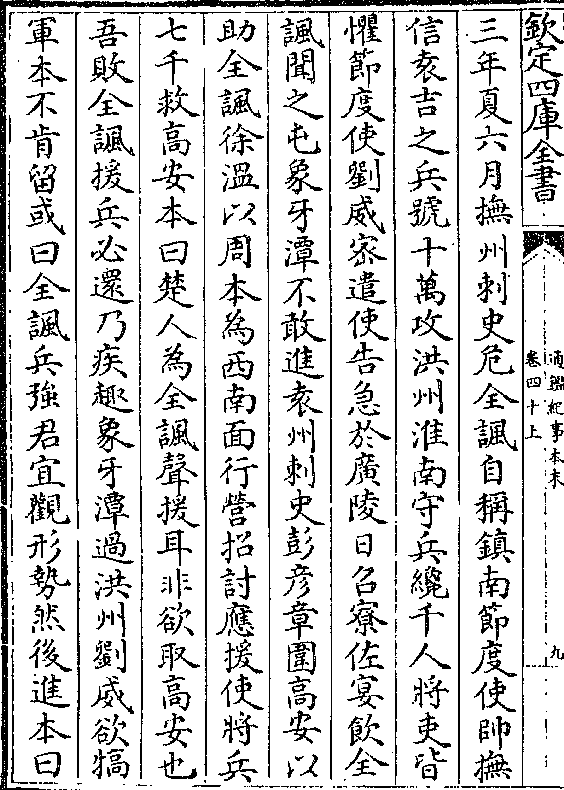 欽定四庫全書
通鑑紀事本末
卷四十上
九
三年夏六月撫州刺史危全諷自稱鎮南節度使帥撫
信袁吉之兵號十萬攻洪州淮南守兵纔千人將吏皆
懼節度使劉威宻遣使告急於廣陵日召寮佐宴飲全
諷聞之屯象牙潭不敢進袁州刺史彭彦章圍高安以
助全諷徐溫以周本為西南面行營招討應援使將兵
七千救高安本曰楚人為全諷聲援耳非欲取高安也
吾敗全諷援兵必還乃疾趣象牙潭過洪州劉威欲犒
軍本不肯留或曰全諷兵強君宜觀形勢然後進本曰